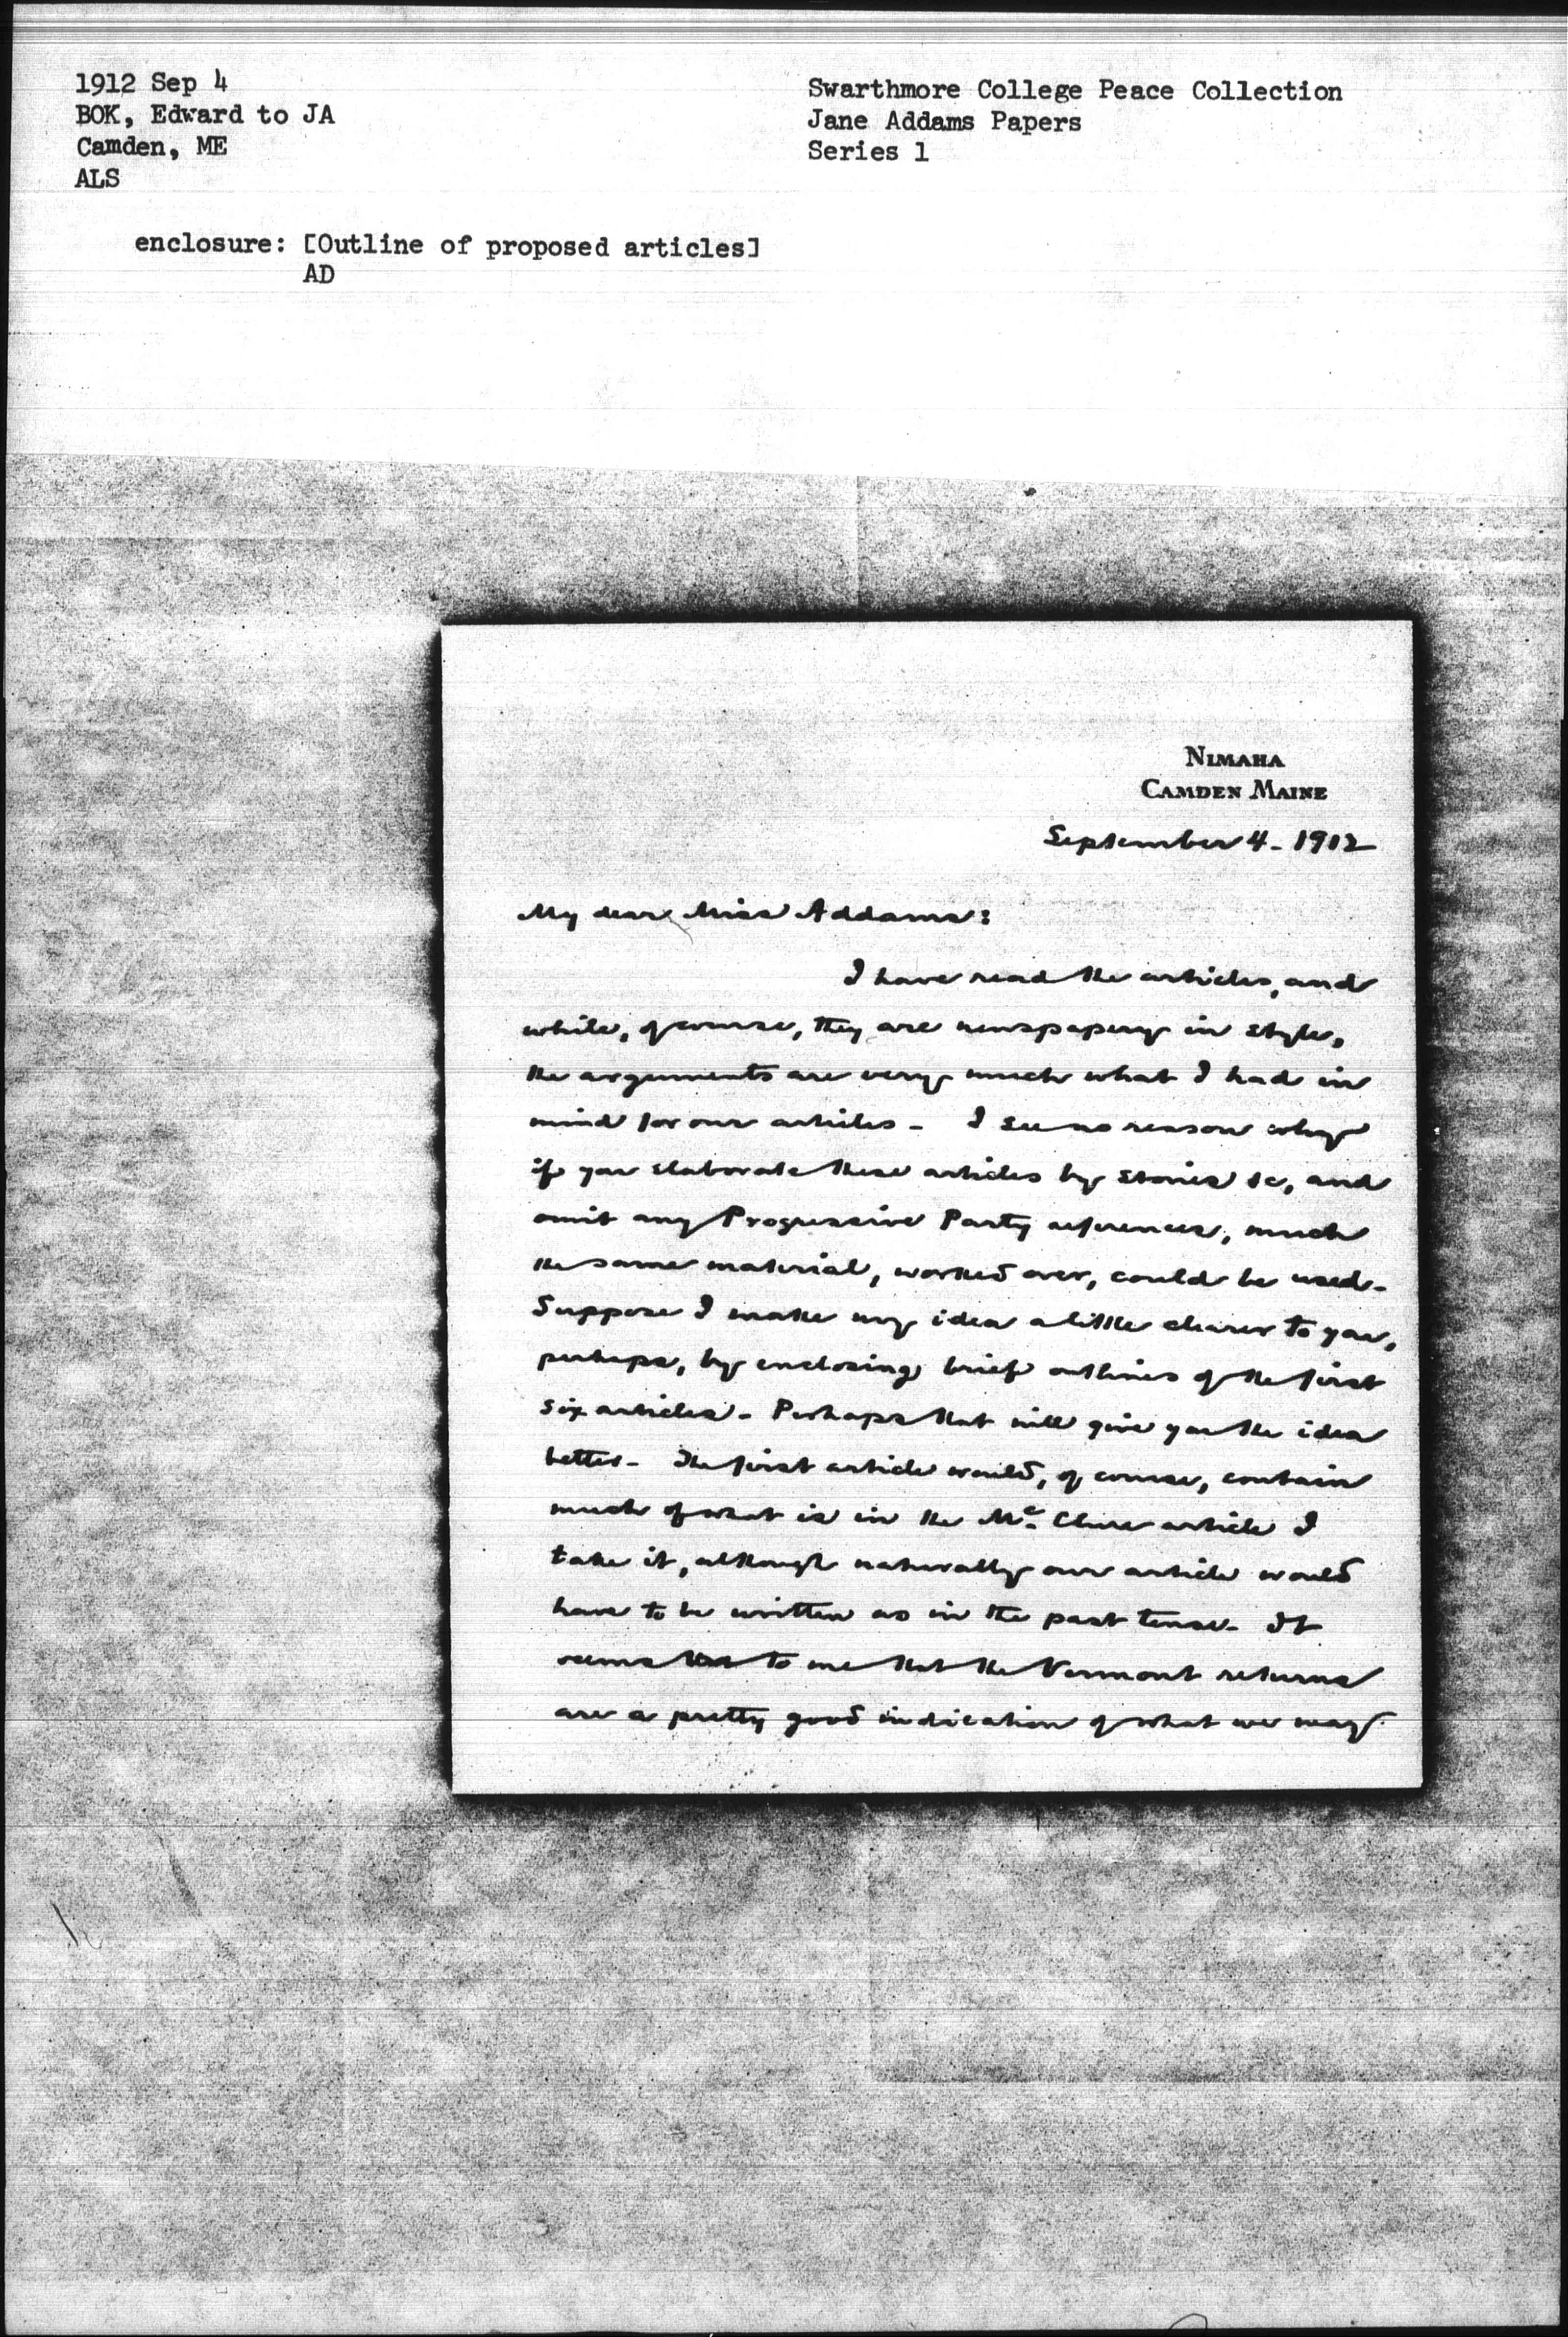 1912 Sep 4
BOK, Edward to JA
Camden, ME
ALS
enclosure: [Outline of proposed articles]
AD
Swarthmore College Peace Collection
Jane Addams Papers
Series 1
NIMAHA
CAMDEN MAINE
September 4 - 1912
My dear Miss Addams:
I have read the articles, and
while, of course, they are newspapery in style,
the arguments are very much what I had in
mind for our articles - I see no reason why
if you elaborate these articles by stories &c, and
omit any Progressive Party references, much
the same material, worked over, could be used -
Suppose I make my idea a little clearer to you,
perhaps, by enclosing brief outlines of the first
six articles - Perhaps that will give you the idea
better - The first article would, of course, contain
much of what is in the McClure article I
take it, although naturally our article would
have to be written as in the past tense - It
seems to me that the Vermont returns
are a pretty good indication of what we may